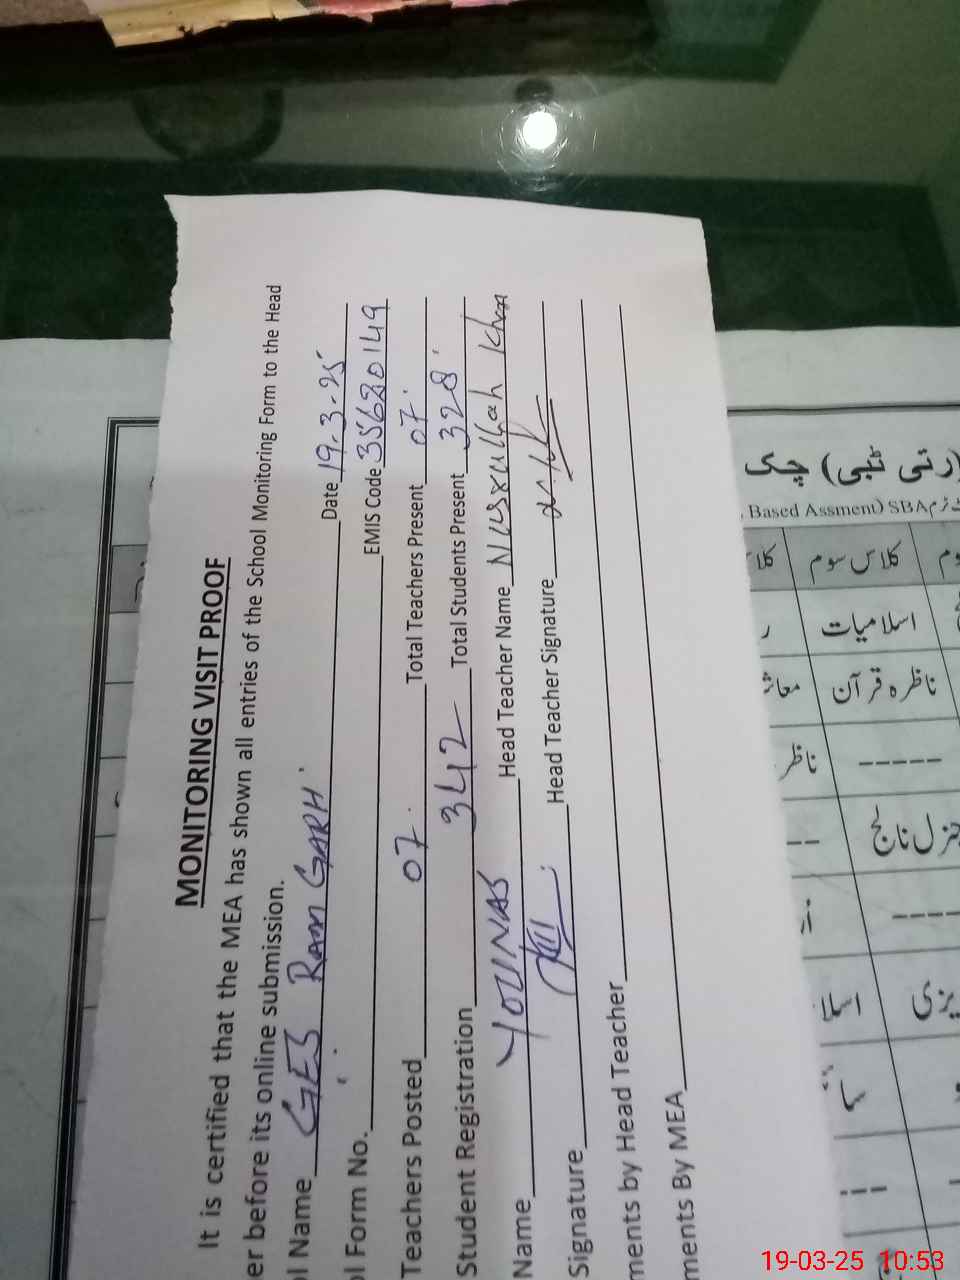 MONITORING VISIT PROOF
It is certified that the MEA has shown all entries of the School Monitoring Form to the Head
er before its online submission.
ol Name GES RAM GARH Date 19-3-25
ol Form No. EMIS Code 35620149
Teachers Posted 07 Total Teachers Present 07
Student Registration 342 Total Students Present 328
Name YOUNAS Head Teacher Name Nasrullah Khan
Signature Head Teacher Signature
ments by Head Teacher
ments By MEA
(رتی ٹبی) چک
Based Assment) SBA
کلاس سوم کلا
اسلامیات
ناظرہ قرآن معاش
----- ناظر
جنرل نالج --
----
یزی اسلا
---
19-03-25 10:53